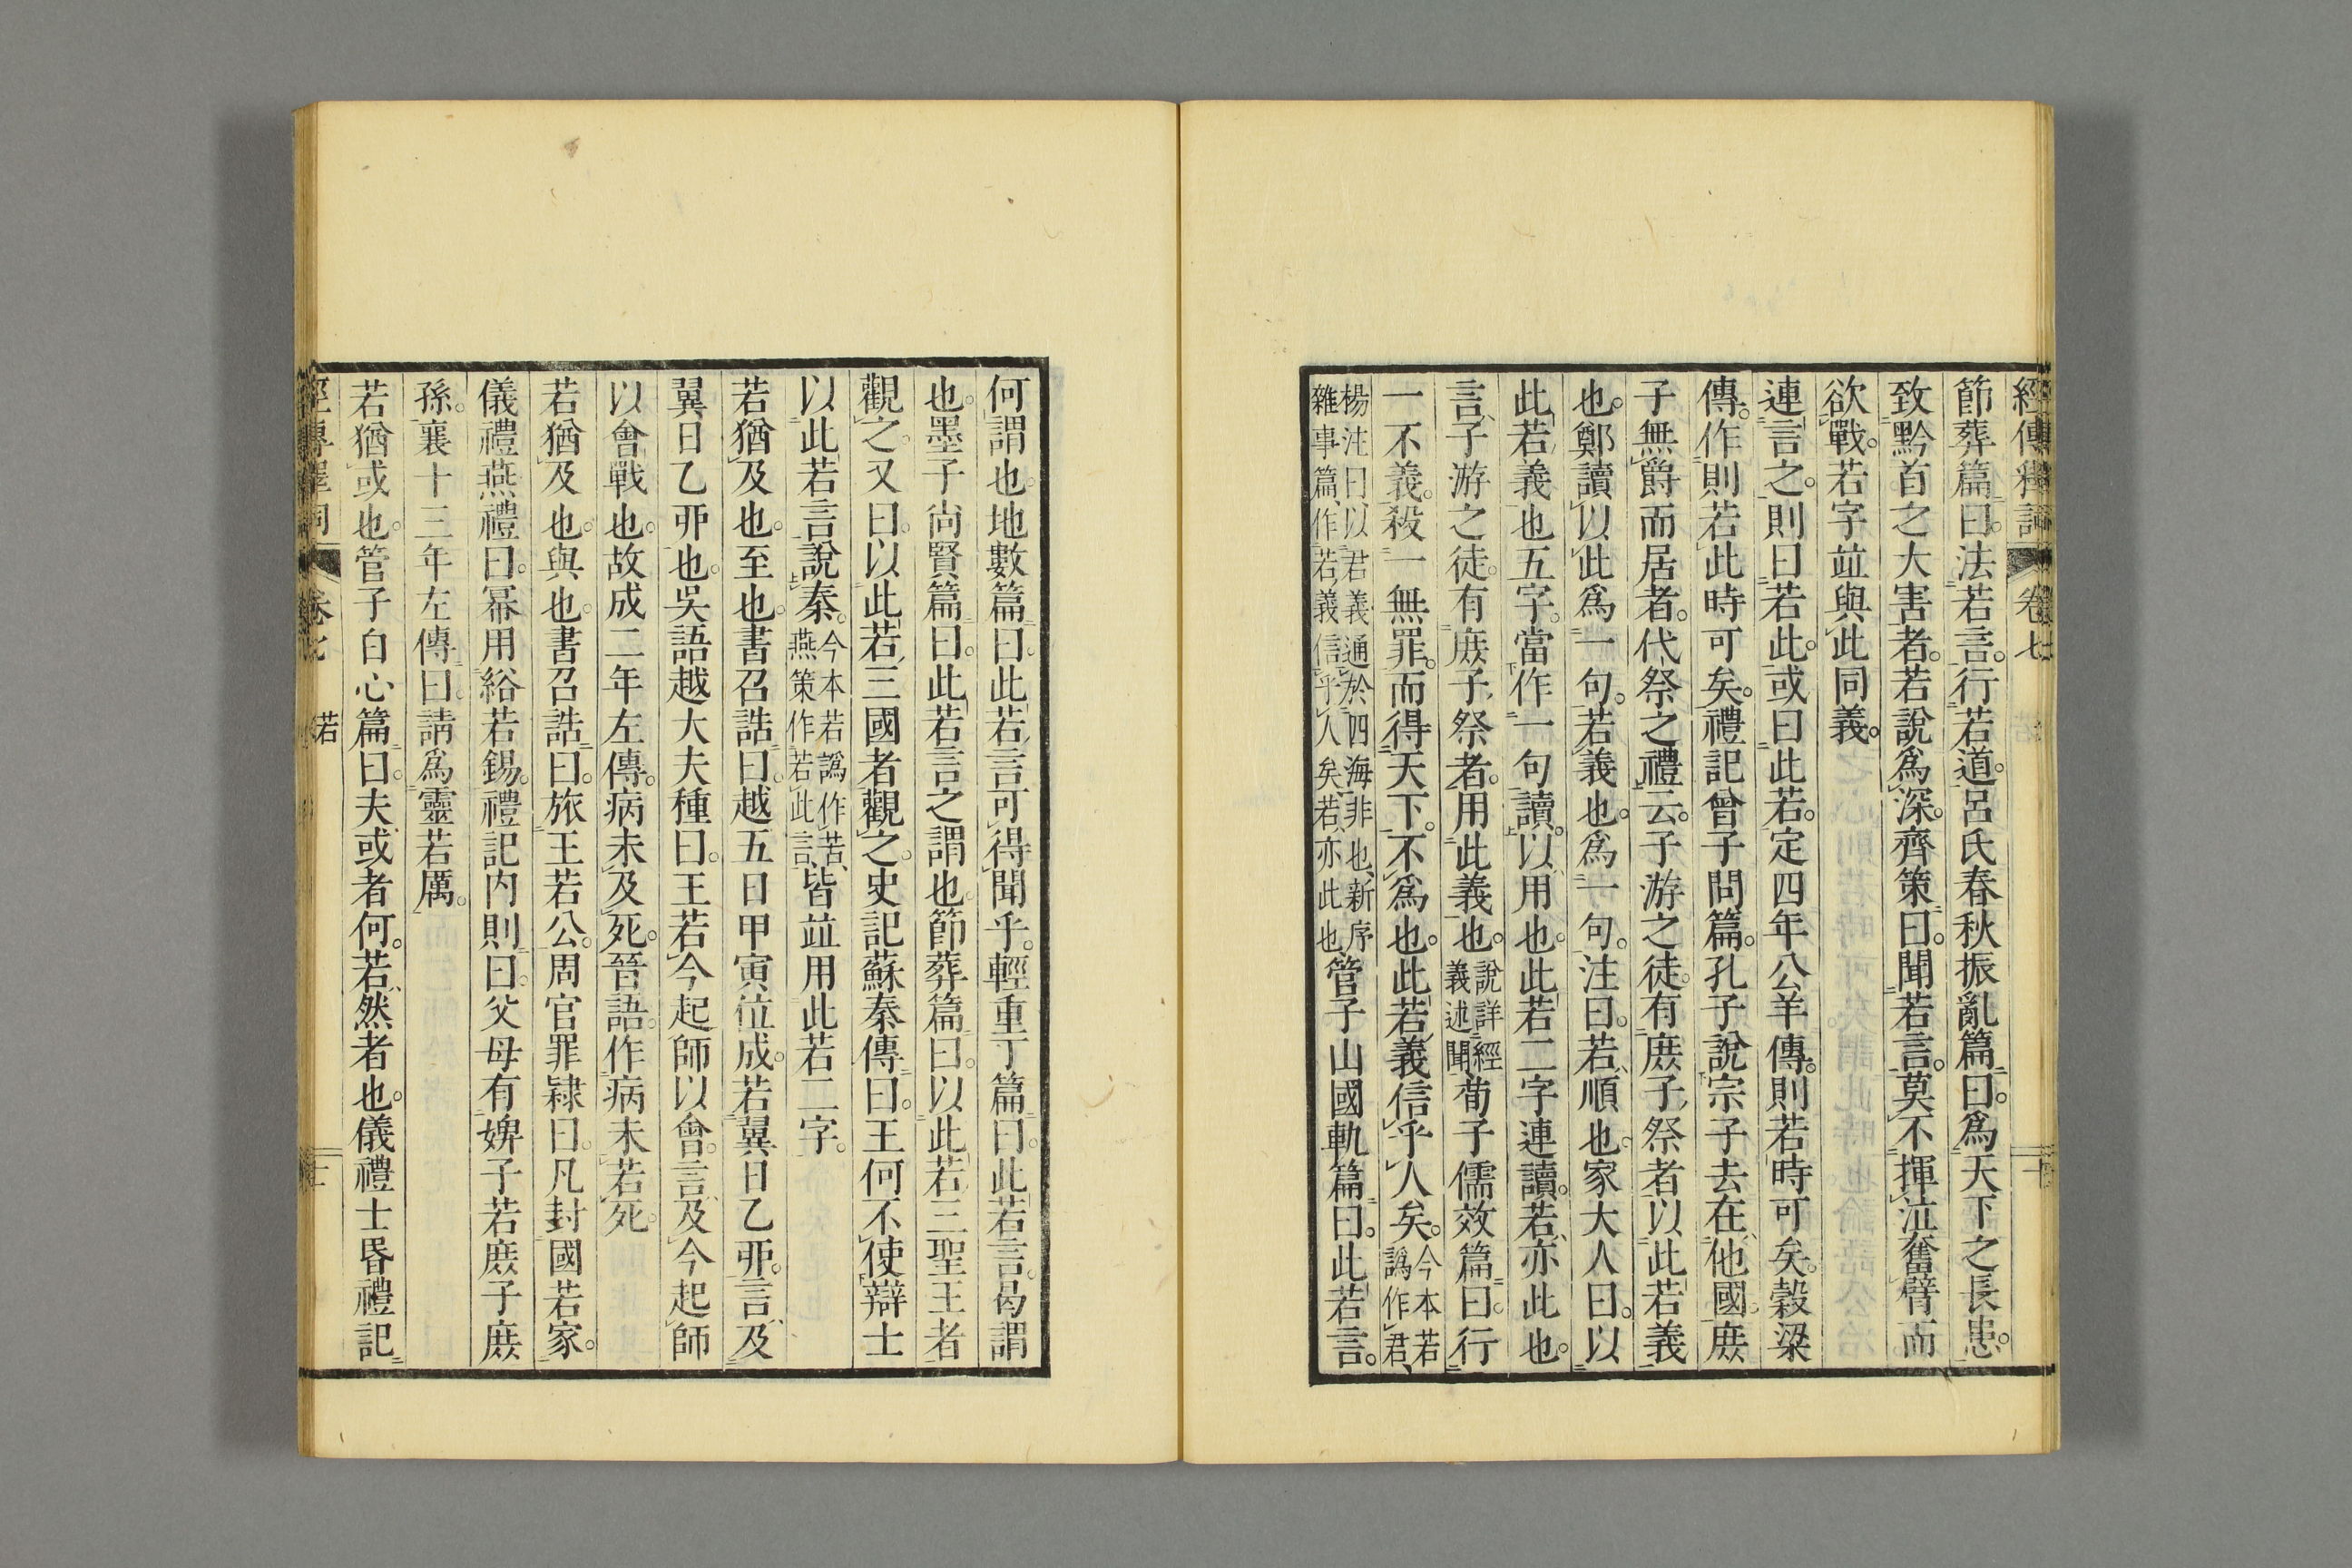 經傳釋詞 卷七 十
節葬篇曰。法若言。行若道。呂氏春秋振亂篇曰。爲天下之長患。
致黔首之大害者。若說爲深。齊策曰。聞若言。莫不揮泣奮臂而
欲戰。若字竝與此同義。
連言之。則曰若此。或曰此若。定四年公羊傳。則若時可矣。穀梁
傳。作則若此時可矣。禮記曾子問篇。孔子說宗子去在他國。庶
子無爵而居者。代祭之禮云。子游之徒。有庶子祭者以此若義
也。鄭讀以此爲一句。若義也。爲一句。注曰。若、順也。家大人曰。以
此若義也五字。當作一句讀。以、用也。此若二字連讀。若、亦此也。
言、子游之徒。有庶子祭者。用此義也。說詳經義述聞荀子儒效篇曰。行
一不義。殺一無罪。而得天下。不爲也。此若義信乎人矣。今本若譌作君、
楊注曰、以君義通於四海非也、新序雜事篇、作若義信乎人矣、若亦此也管子山國軌篇曰。此若言。
何謂也。地數篇曰。此若言可得聞乎。輕重丁篇曰。此若言。曷謂
也。墨子尚賢篇曰。此若言之謂也。節葬篇曰。以此若三聖王者
觀之。又曰。以此若三國者觀之。史記蘇秦傳曰。王何不使辯士
以此若言說秦。今本若譌作苦、燕策作若此言、皆竝用此若二字。
若猶及也。至也。書召誥曰。越五日甲寅位成。若翼日乙丣。言、及
翼日乙丣也。吳語越大夫種曰。王若今起師以會。言、及今起師
以會戰也。故成二年左傳。病未及死。晉語。作病未若死。
若猶及也。與也。書召誥曰。旅王若公。周官罪隷曰。凡封國若家。
儀禮燕禮曰。冪用綌若錫。禮記内則曰。父母有婢子若庶子庶
孫。襄十三年左傳曰。請爲靈若厲。
若猶或也。管子白心篇曰。夫或者何。若然者也。儀禮士昏禮記
經傳釋詞 卷七 若 十一